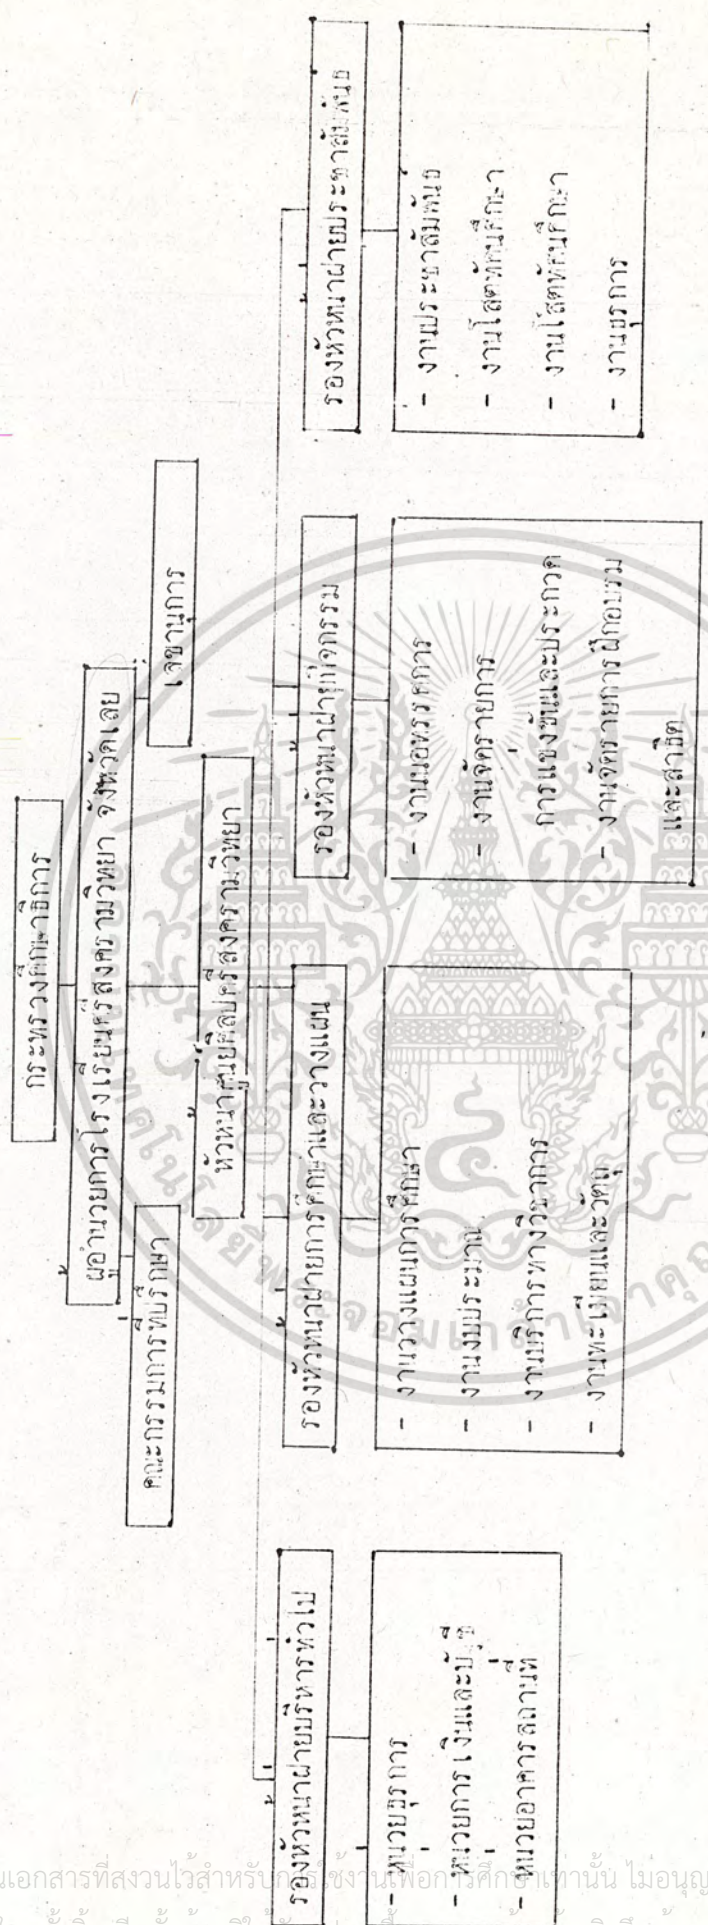 กระทรวงศึกษาธิการ
ผู้อำนวยการโรงเรียนศรีสงครามวิทยา จังหวัดเลย
คณะกรรมการที่ปรึกษา
เลขานุการ
หัวหน้าศูนย์ศิลปศรีสงครามวิทยา
รองหัวหน้าฝ่ายบริหารทั่วไป
- หน่วยธุรการ
- หน่วยการเงินและบัญชี
- หน่วยอาคารสถานที่
รองหัวหน้าฝ่ายการศึกษาและวางแผน
- งานวางแผนการศึกษา
- งานงบประมาณ
- งานบริการทางวิชาการ
- งานทะเบียนและวัดผล
รองหัวหน้าฝ่ายกิจกรรม
- งานนิทรรศการ
- งานจัดรายการ
การแข่งขันและประกวด
- งานจัดรายการฝึกอบรม
และสาธิต
รองหัวหน้าฝ่ายประชาสัมพันธ์
- งานประชาสัมพันธ์
- งานโสตทัศนศึกษา
- งานโสตทัศนศึกษา
- งานธุรการ